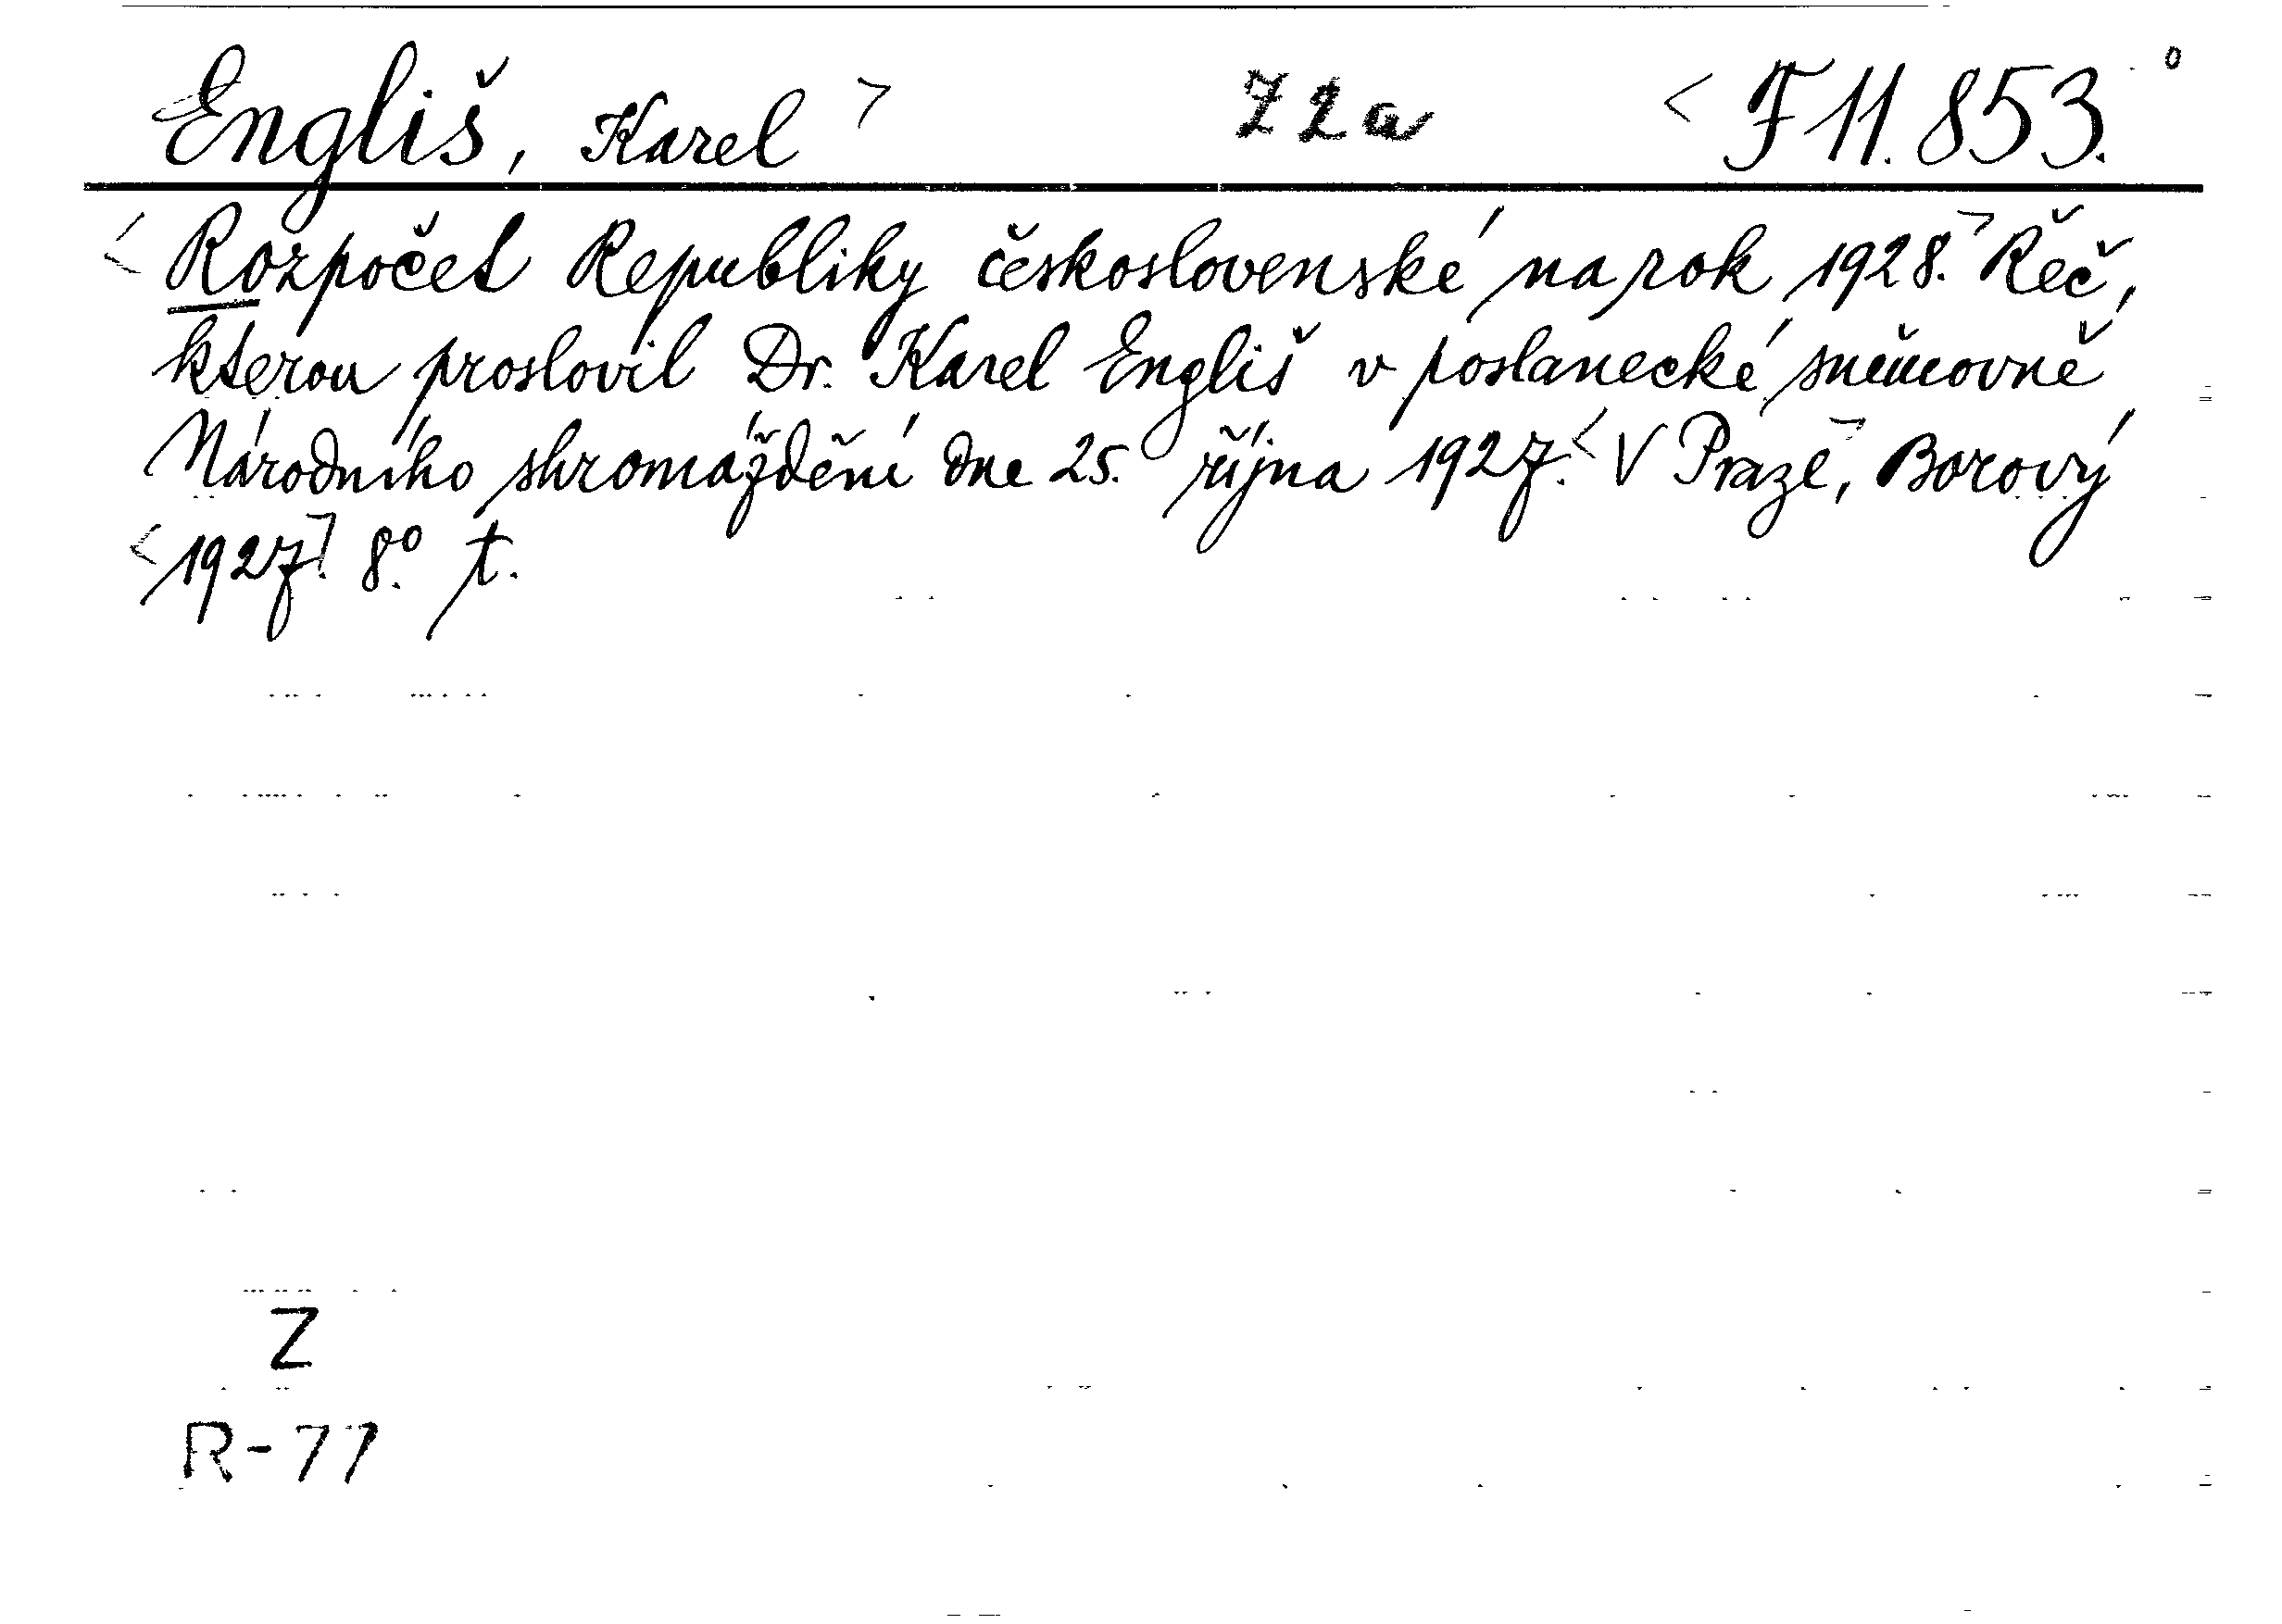 Engliš, Karel > Z2a < F 11.853. °
< Rozpočet Republiky československé na rok 1928.> Řeč,
kterou proslovil Dr. Karel Engliš v poslanecké sněmovně
Národního shromáždění dne 25. října 1927.< V Praze>, Borový
<1927.> 8.° t.
Z
R-77